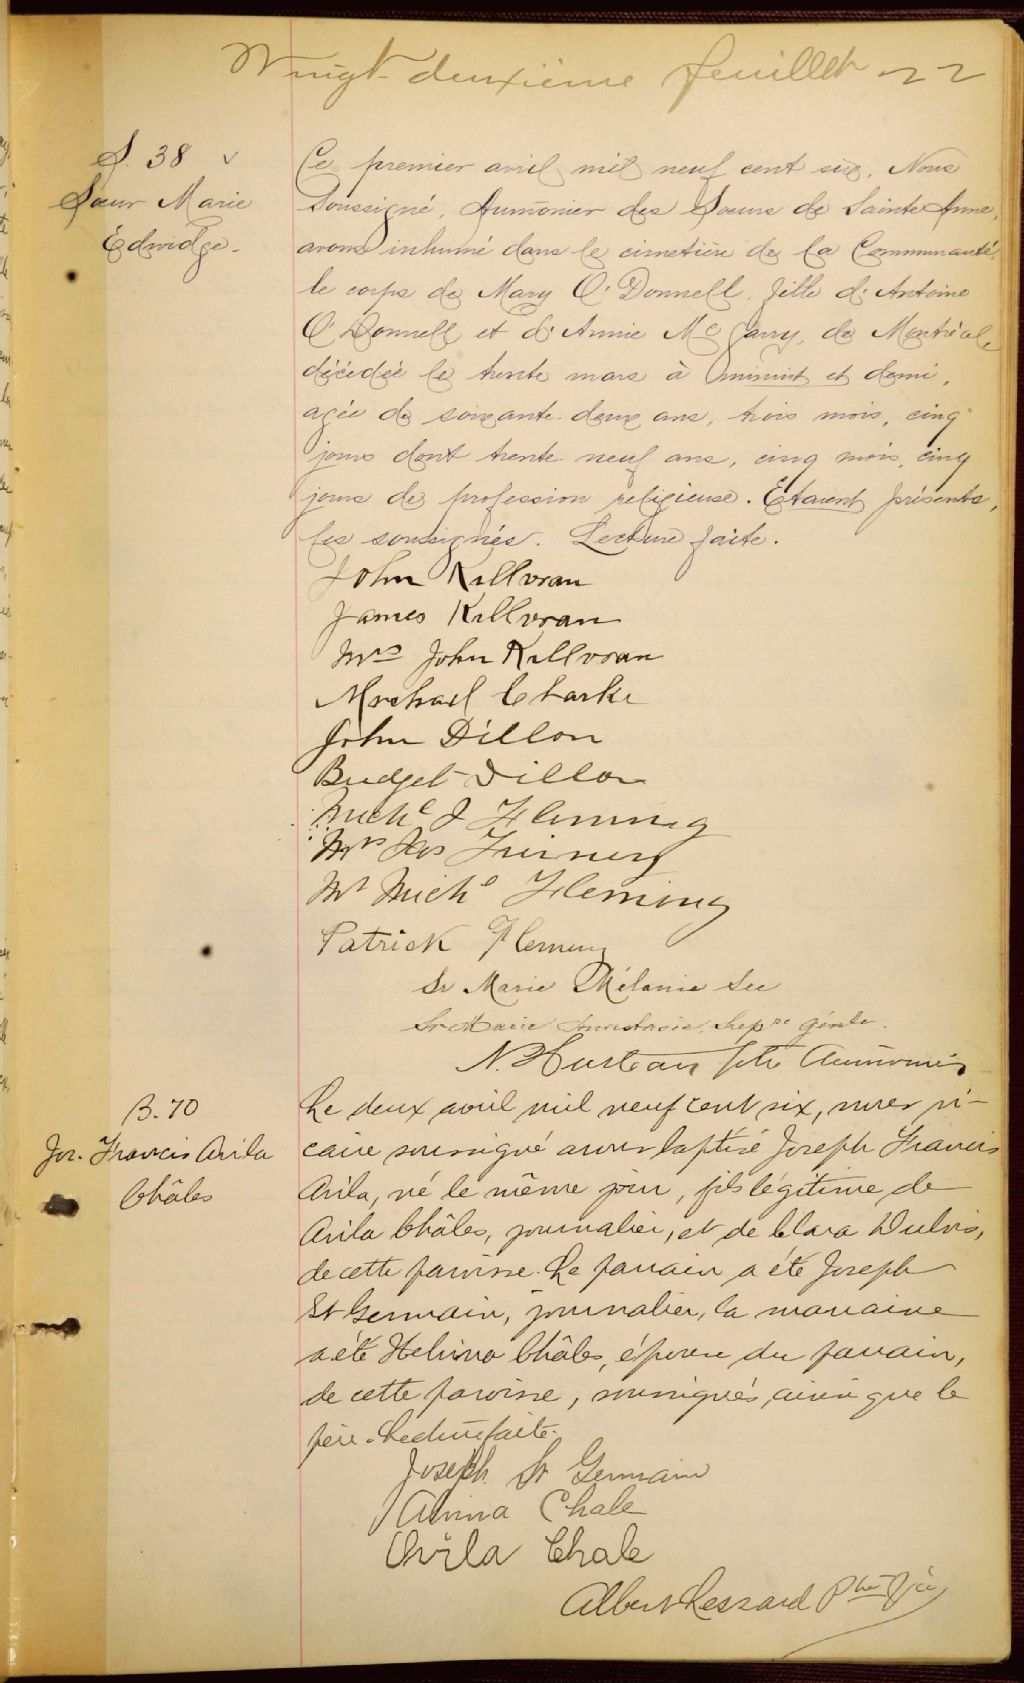 Vingt-deuxième feuillet 22
S. 38 v
Sœur Marie
Edwidge.
Ce premier avril mil neuf cent six, Nous
Soussigné, Aumônier des Sœurs de Sainte Anne,
avons inhumé dans le cimetière de la Communauté,
le corps de Mary O'Donnell, fille d'Antoine
O'Donnell et d'Annie Mc Garry, de Montréal,
décédée le trente mars à minuit et demi,
agée de soixante-deux ans, trois mois, cinq
jours dont trente-neuf ans, cinq mois, cinq
jours de profession religieuse. Etaient présents,
les soussignés. Lecture faite.
John Killoran
James Killoran
Mrs John Killoran
Michael Clarke
John Dillon
Bridget Dillon
Michl J Fleming
Mrs Jos
Mr Michl Fleming
Patrick Fleming
Sr Marie Mélanie Sec
Sr Marie Anastasie, Supre Génle.
N. Hurteau ptre Aumônier
B. 70
Jos. Francis Avila
Châles
Le deux avril mil neuf cent six, nous vi-
caire soussigné avons baptisé Joseph Francis
Avila, né le même jour, fils légitime de
Avila Châles, journalier, et de Clara Dubois,
de cette paroisse. Le parrain a été Joseph
St Germain, journalier, la marraine
a été Châles, épouse du parrain,
de cette paroisse, soussignés, ainsi que le
père. Lecture faite.
Joseph St Germain
Alvina Chale
Avila Chale
Albert Lessard Ptre Vic